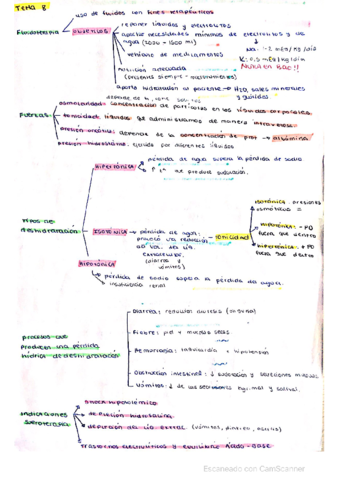 Tema 8
uso de fluidos con fines terapéuticos
Fluidoterapia
OBJETIVOS
reponer líquidos y electrolitos
aportar necesidades mínimas de electrolitos y agua
(2000 - 1500 ml)
Na: 1-2 mEq/Kg/día
K: 0,5 mEq/Kg/día
NUNCA EN BOLO!!
vehículo de medicamentos
nutrición adecuada
aporte hidratación al paciente → H2O, sales minerales
y glúcidos
FUERZAS
osmolaridad: concentración de partículas en los líquidos corporales.
tonicidad: líquidos que administramos de manera intravenosa.
presión oncótica: depende de la concentración de prot → albúmina
presión hidrostática: ejercida por diferentes líquidos
HIPERTÓNICA
pérdida de agua supera la pérdida de sodio
tipos de
deshidratación
ISOTÓNICA
pérdida de agua:
tonicidad
isotónica: presiones
osmóticas =
hipotónica: - PO
fuera que dentro
hipertónica: + PO
fuera que dentro
(diarrea y
vómitos)
HIPOTÓNICA
pérdida de sodio supera la pérdida de agua.
insuficiencia renal
procesos que
producen una pérdida
hídrica de deshidratación
Diarrea:
Fiebre: piel + mucosas secas.
Hemorragia: taquicardia + hipotensión
Obstrucción intestinal: ↓ sudoración y secreciones mucosas.
Vómitos: ↓ de las secreciones lagrimal y salival.
indicaciones
sueroterapia
shock hipovolémico
depleción hidrosalina
depleción de líq extra (vómitos, diarrea, ascitis)
trastornos electrolíticos y equilibrio ácido-base
Escaneado con CamScanner